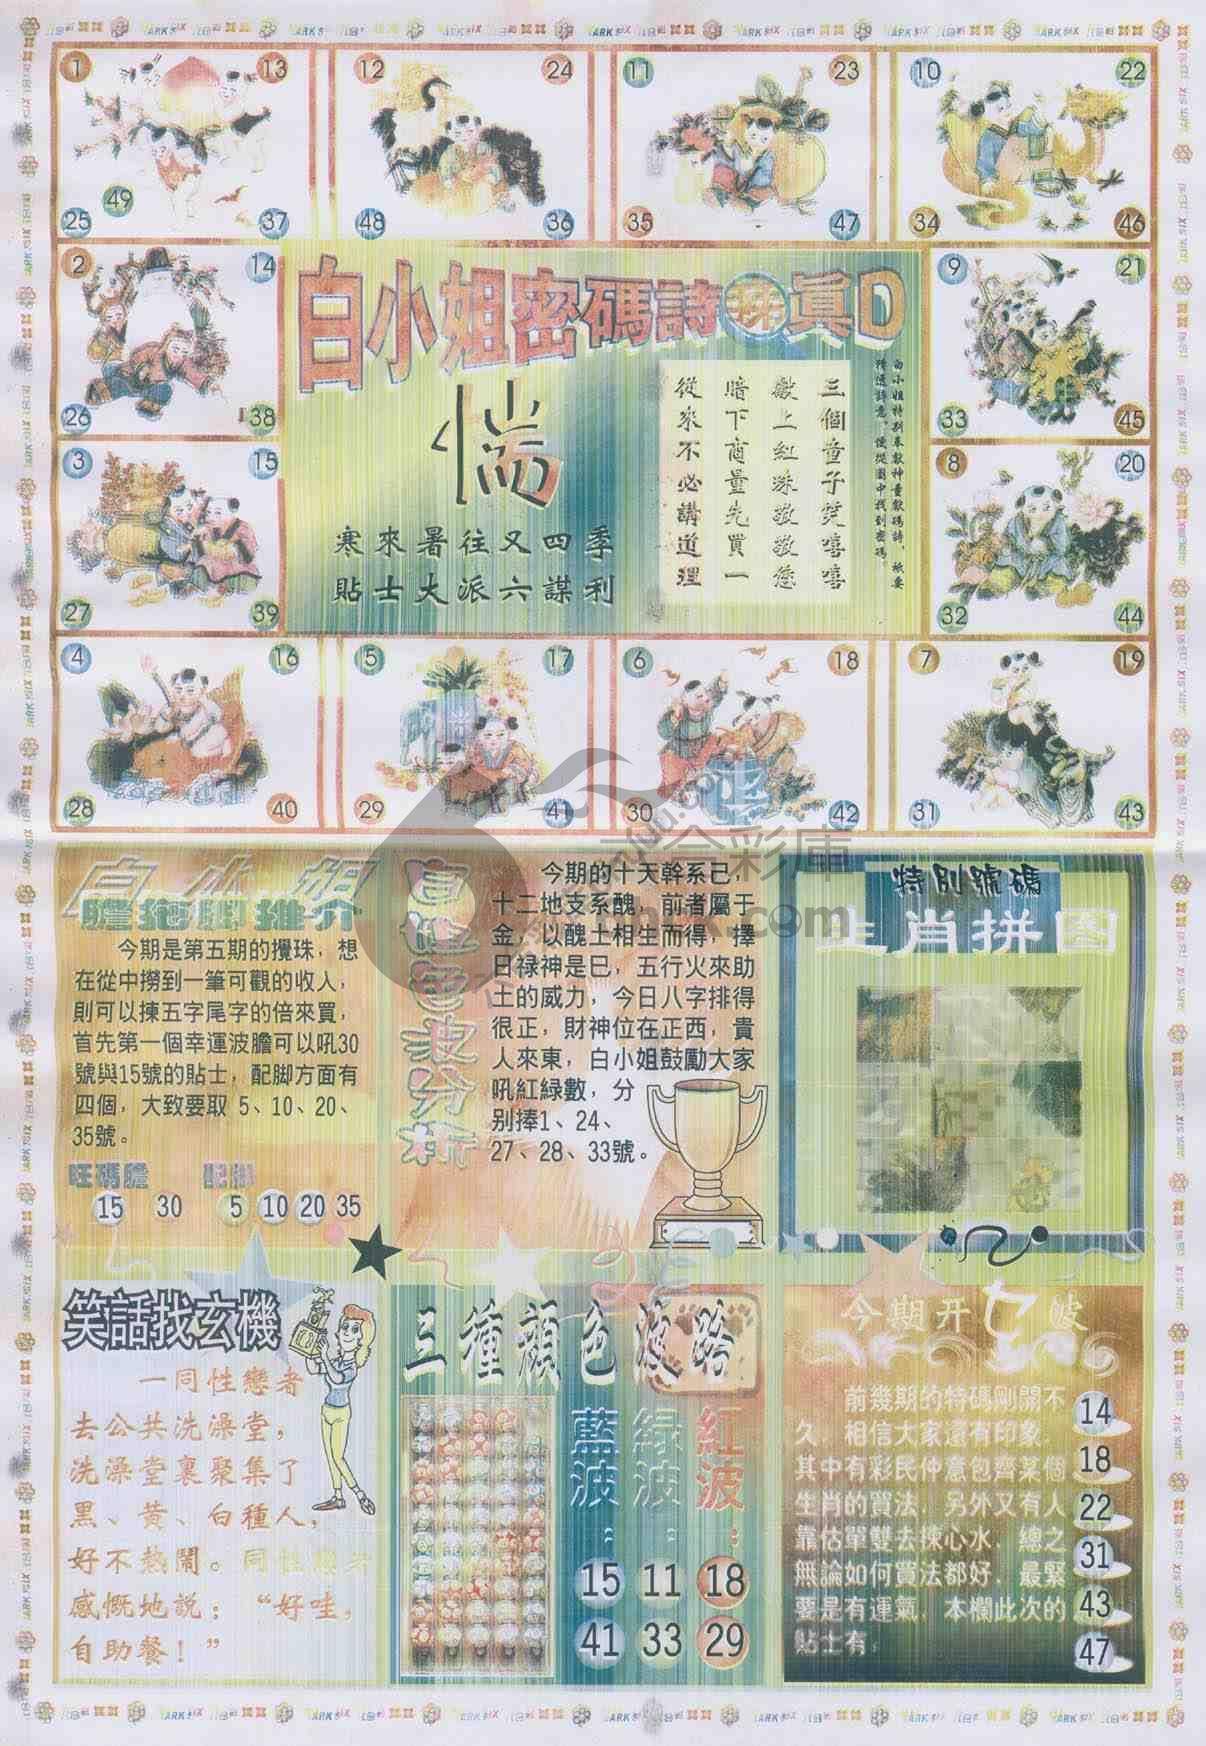 1 13 12 24 11 23 10 22
49
25 37 48 36 35 47 34 46
2 14 9 21
26 38 33 45
3 15 8 20
27 39 32 44
4 16 5 17 6 18 7 19
28 40 29 41 30 42 31 43
白小姐密碼詩 眞D
惴
寒來暑往又四季
貼士大派六謀利
三個童子笑嘻嘻
獻上紅珠敬敬您
暗下商量先買一
從來不必講道理
白小姐
膽拖脚推介
今期是第五期的攪珠，想
在從中撈到一筆可觀的收入，
則可以揀五字尾字的倍來買，
首先第一個幸運波膽可以吼30
號與15號的貼士，配脚方面有
四個，大致要取 5、10、20、
35號。
旺碼膽 配脚
15 30 5 10 20 35
今期的十天幹系己，
十二地支系醜，前者屬于
金，以醜土相生而得，擇
日禄神是巳，五行火來助
土的威力，今日八字排得
很正，財神位在正西，貴
人來東，白小姐鼓勵大家
吼紅緑數，分
别捧1、24、
27、28、33號。
特别號碼
生肖拼図
笑話找玄機
一同性戀者
去公共洗澡堂，
洗澡堂裏聚集了
黑、黄、白種人，
好不熱鬧。同性戀者
感慨地説：“好哇，
自助餐！”
三種顔色
藍波： 緑波： 紅波：
15 11 18
41 33 29
今期开 波
前幾期的特碼剛開不
久，相信大家還有印象，
其中有彩民仲意包齊某個
生肖的買法，另外又有人
靠估單雙去揀心水，總之
無論如何買法都好，最緊
要是有運氣，本欄此次的
貼士有：
14
18
22
31
43
47